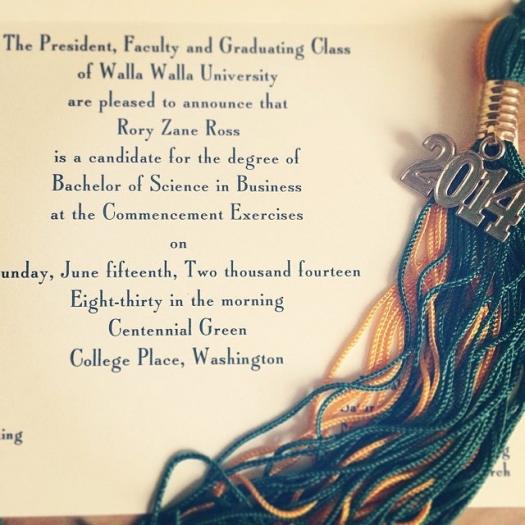 The President, Faculty and Graduating Class
of Walla Walla University
are pleased to announce that
Rory Zane Ross
is a candidate for the degree of
Bachelor of Science in Business
at the Commencement Exercises
on
unday, June fifteenth, Two thousand fourteen
Eight-thirty in the morning
Centennial Green
College Place, Washington
ing
rch
2014